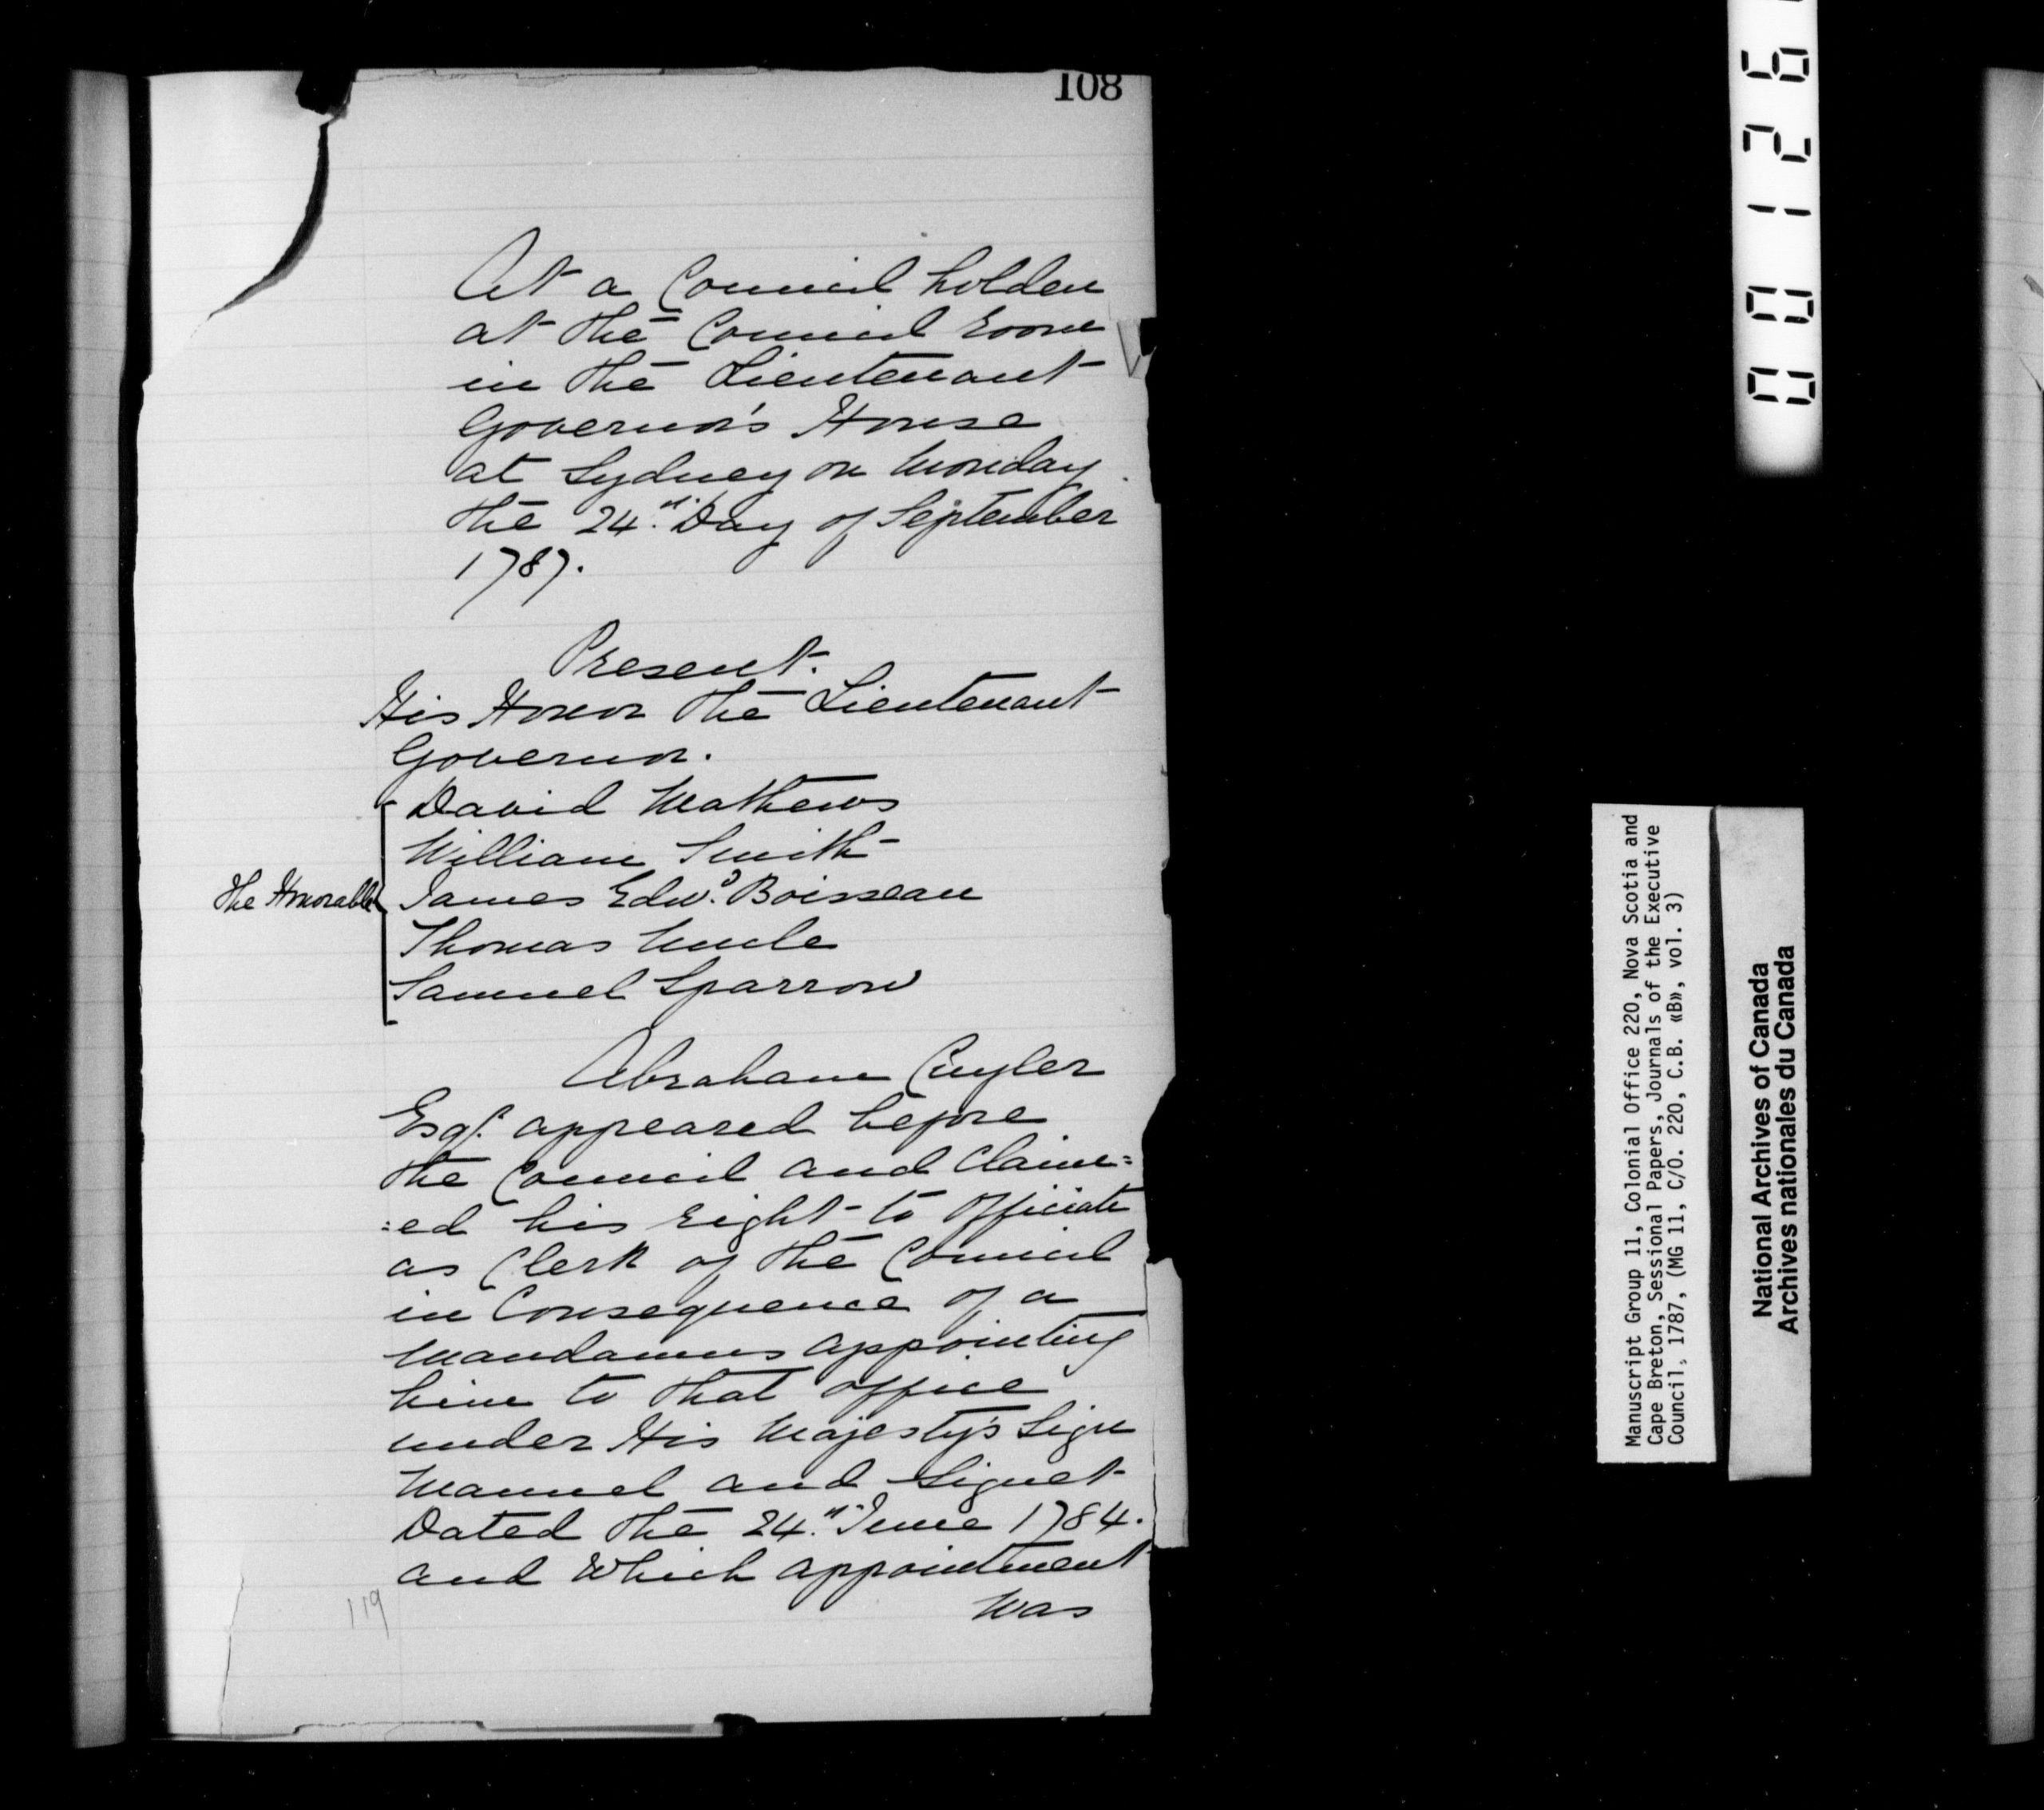 108
At a Council holden
at the Council Room
in the Lieutenant
Governor's House
at Sydney on Monday
the 24th Day of September
1787.
Present.
His Honor the Lieutenant
Governor.
David Mathews
William Smith
The Honorable James Edwd. Boisseau
Thomas Uncle
Samuel Sparrow
Abraham Cuyler
Esqr. appeared before
the Council and Claim=
=ed his right to Officiate
as Clerk of the Council
in Consequence of a
Mandamus appointing
him to that office
under His Majesty's Sign
Manuel and Signet
Dated the 24th June 1784.
and Which appointment
Was
119
001126
Manuscript Group 11, Colonial Office 220, Nova Scotia and
Cape Breton, Sessional Papers, Journals of the Executive
Council, 1787, (MG 11, C/O. 220, C.B. «B», vol. 3)
National Archives of Canada
Archives nationales du Canada